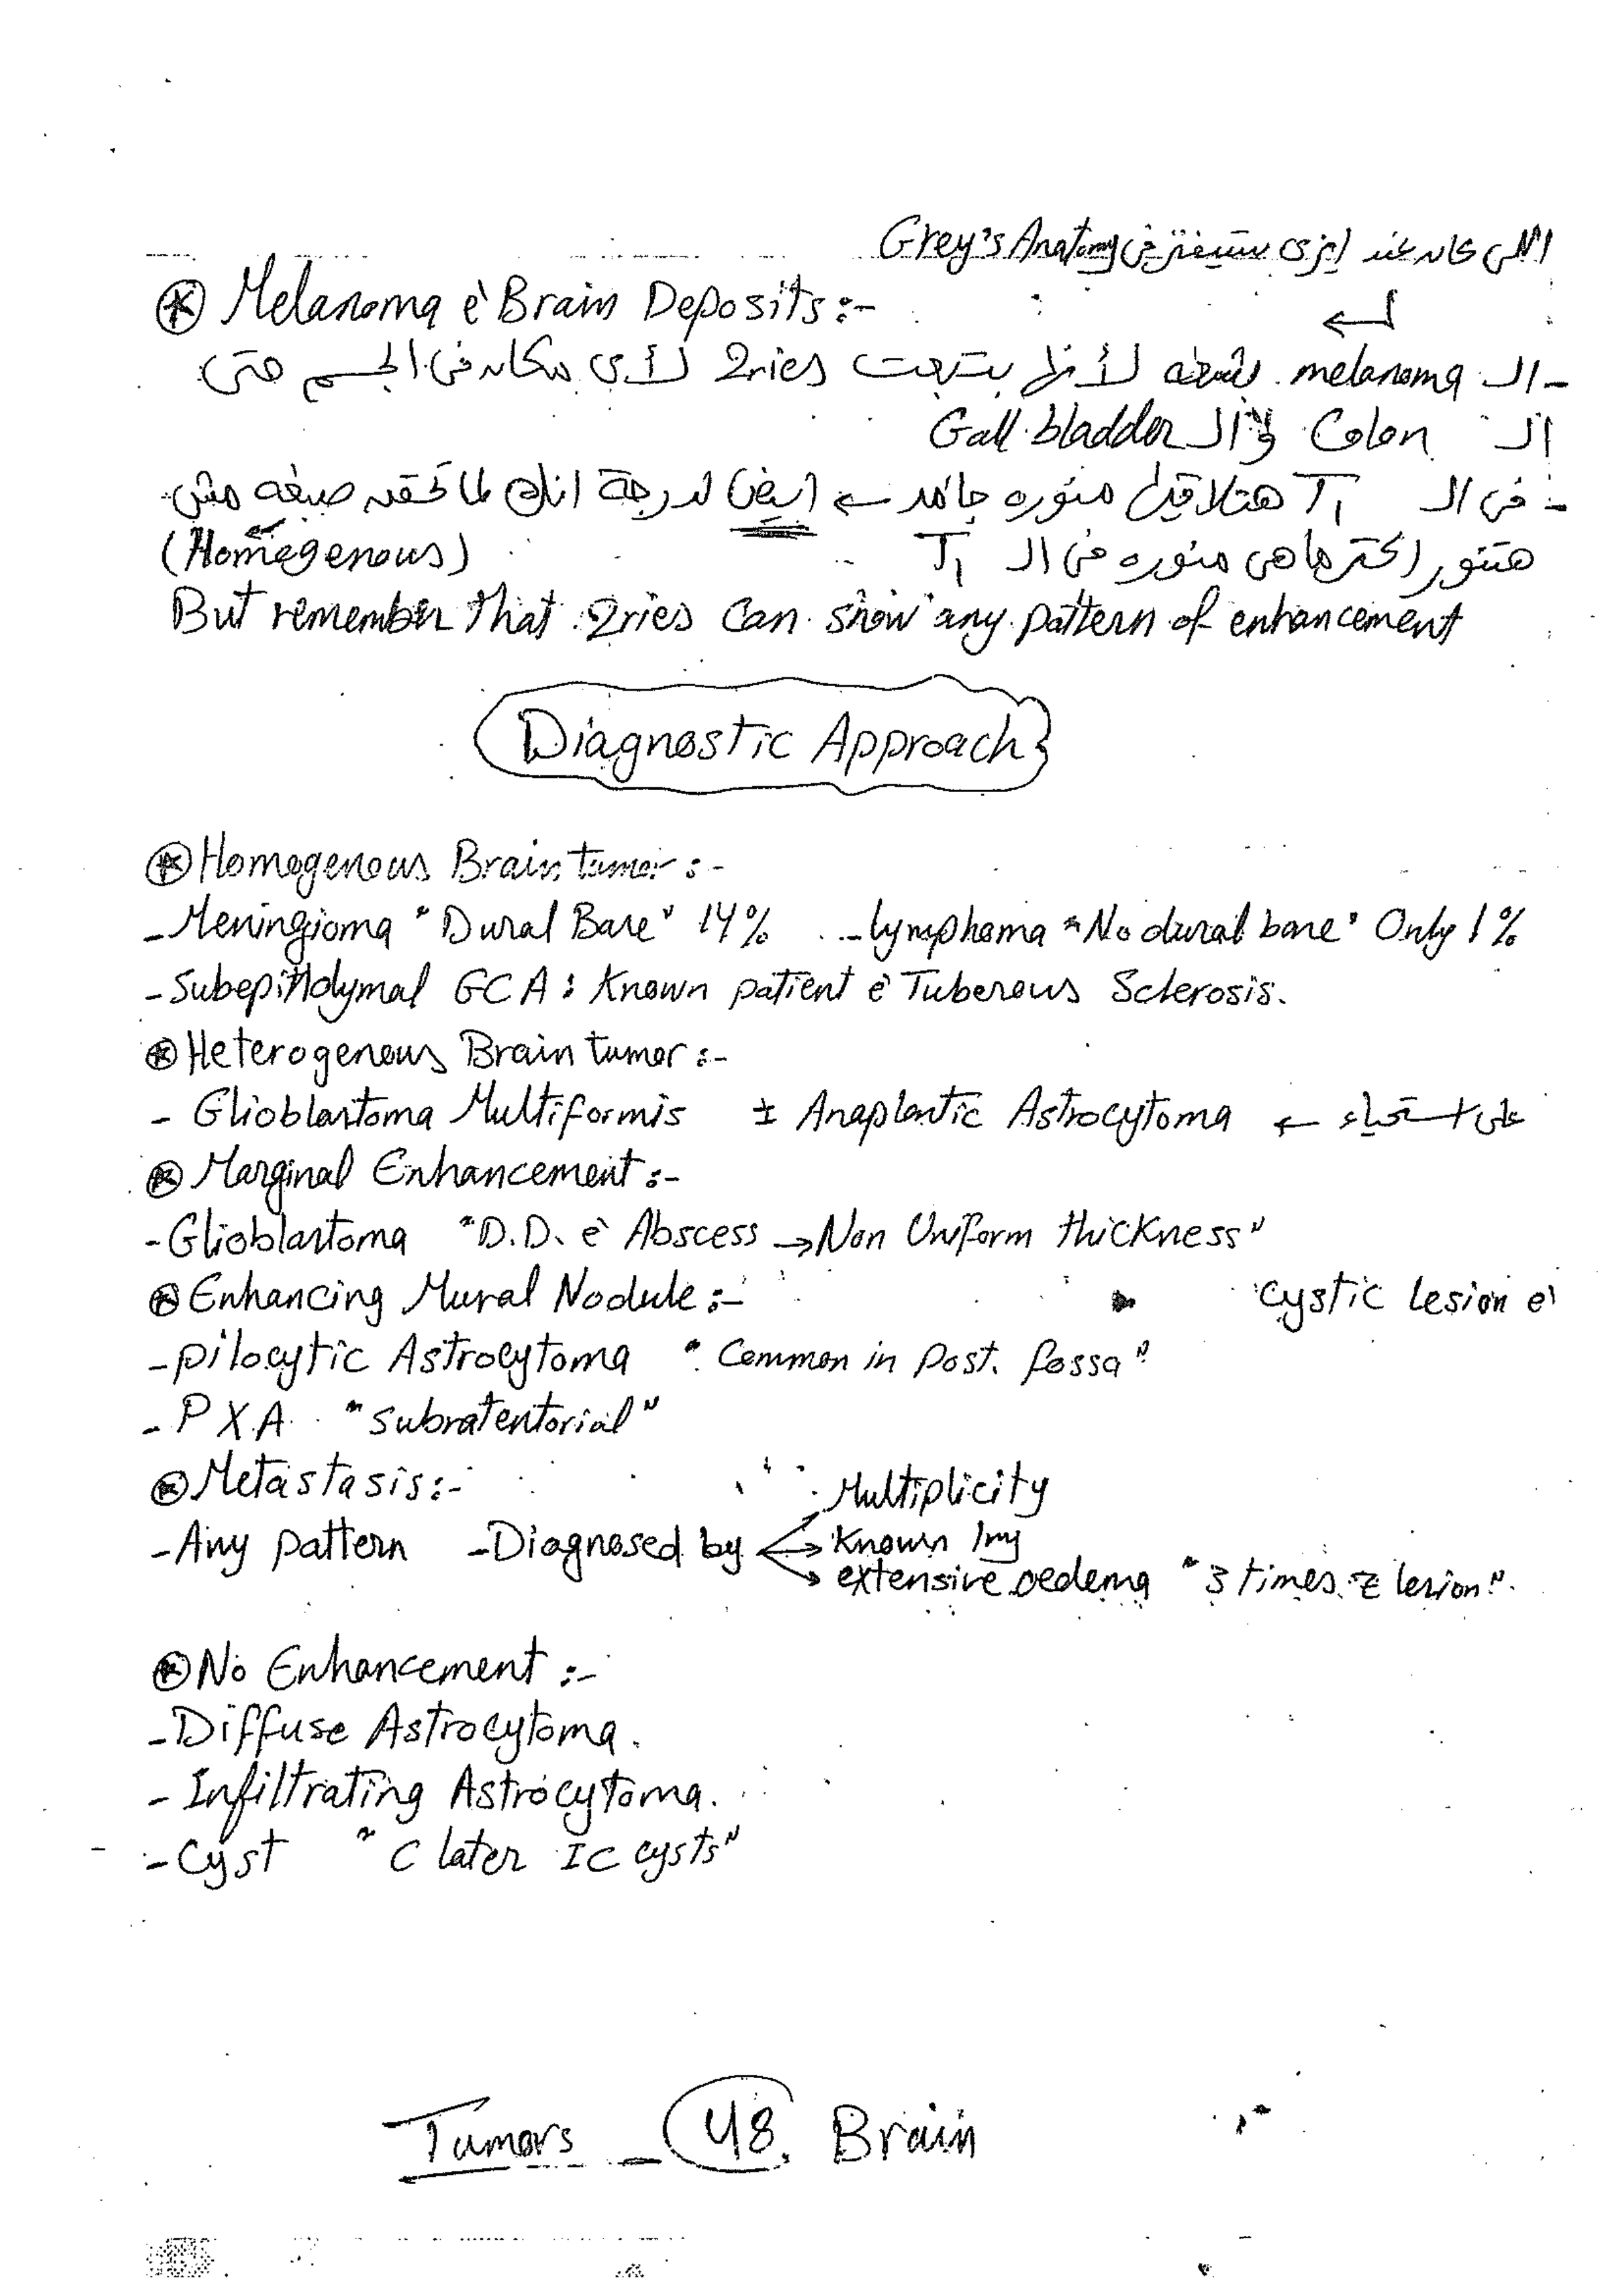 اللي كان عند إيزي ستيفنز في Grey's Anatomy
⊛ Melanoma è Brain Deposits:-
- الـ melanoma بشعة لأنها بتبعت 2ries لأي مكان في الجسم حتى
الـ Colon والـ Gall bladder
- في الـ T1 هتلاقيها منوره جامد ← ابيض لدرجة انك لما تحقنه صبغه مش
هتنور اكتر ما هي منوره في الـ T1 (Homogenous)
But remember that 2ries can show any pattern of enhancement
Diagnostic Approach
⊛ Homogenous Brain tumor:-
- Meningioma "Dural Base" 14% - lymphoma "No dural base" Only 1%
- Subepindymal GCA: Known patient è Tuberous Sclerosis.
⊛ Heterogenous Brain tumor:-
- Glioblastoma Multiformis ± Anaplastic Astrocytoma ← على استحياء
⊛ Marginal Enhancement:-
- Glioblastoma "D.D. è Abscess → Non Uniform thickness"
⊛ Enhancing Mural Nodule:- Cystic lesion è
- pilocytic Astrocytoma "Common in Post. fossa"
- PXA "Subratentorial"
⊛ Metastasis:- Multiplicity
- Any pattern - Diagnosed by → Known 1ry
→ extensive oedema "3 times z lesion".
⊛ No Enhancement:-
- Diffuse Astrocytoma.
- Infiltrating Astrocytoma.
- Cyst "C later IC cysts"
Tumors - 48. Brain